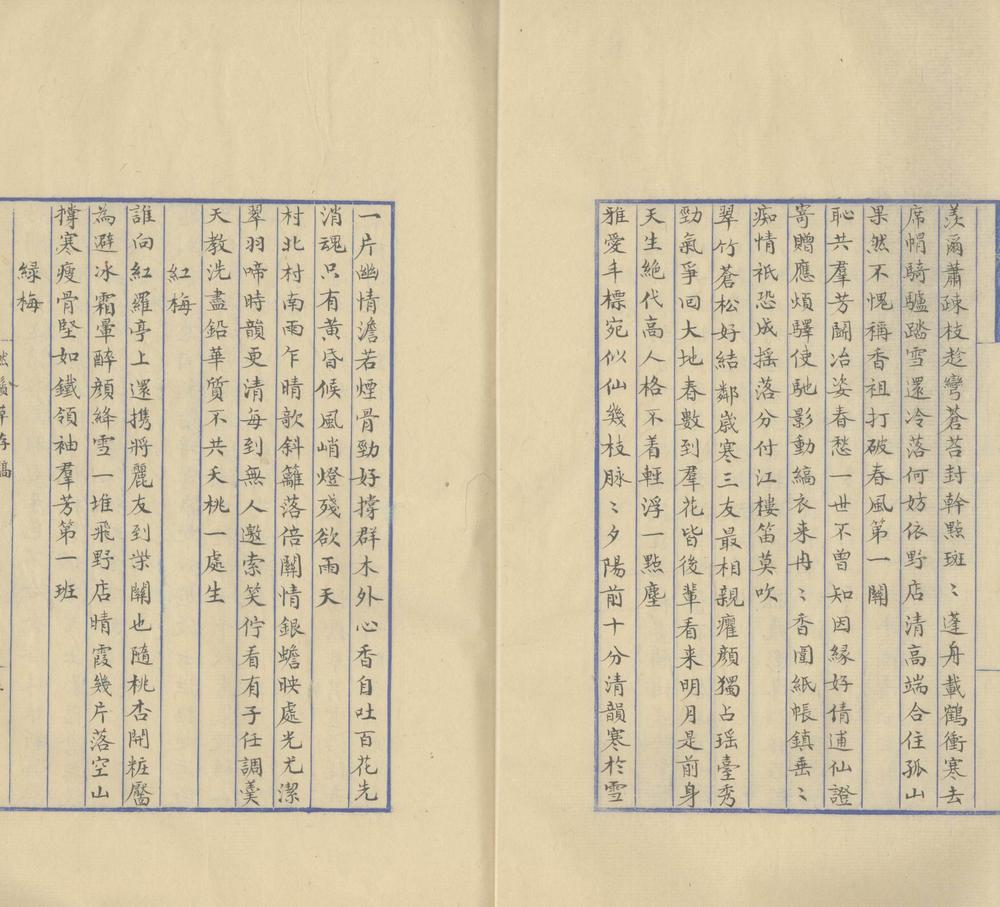 羨爾蕭疎枝趁彎蒼苔封幹點斑〻蓬舟載鶴衝寒去
席帽騎驢踏雪還冷落何妨依野店清高端合住孤山
果然不愧稱香祖打破春風第一關
恥共羣芳鬪冶姿春愁一世不曾知因緣好倩逋仙證
寄贈應煩驛使馳影動縞衣来冉〻香圍紙帳鎮垂〻
痴情祇恐成搖落分付江樓笛莫吹
翠竹蒼松好結鄰歲寒三友最相親癯顏獨占瑶臺秀
勁氣爭回大地春數到羣花皆後輩看来明月是前身
天生絶代高人格不着輕浮一點塵
雅愛丰標宛似仙幾枝脉〻夕陽前十分清韻寒於雪
一片幽情澹若煙骨勁好撐群木外心香自吐百花先
消魂只有黃昏候風峭燈殘欲雨天
村北村南雨乍晴歌斜籬落倍關情銀蟾映處光尤潔
翠羽啼時韻更清每到無人邀索笑佇看有子任調羹
天教洗盡鉛華質不共夭桃一處生
紅梅
誰向紅羅亭上還携將麗友到柴關也隨桃杏開粧靨
為避冰霜暈醉顏絳雪一堆飛野店晴霞幾片落空山
撐寒瘦骨堅如鐵領袖羣芳第一班
綠梅